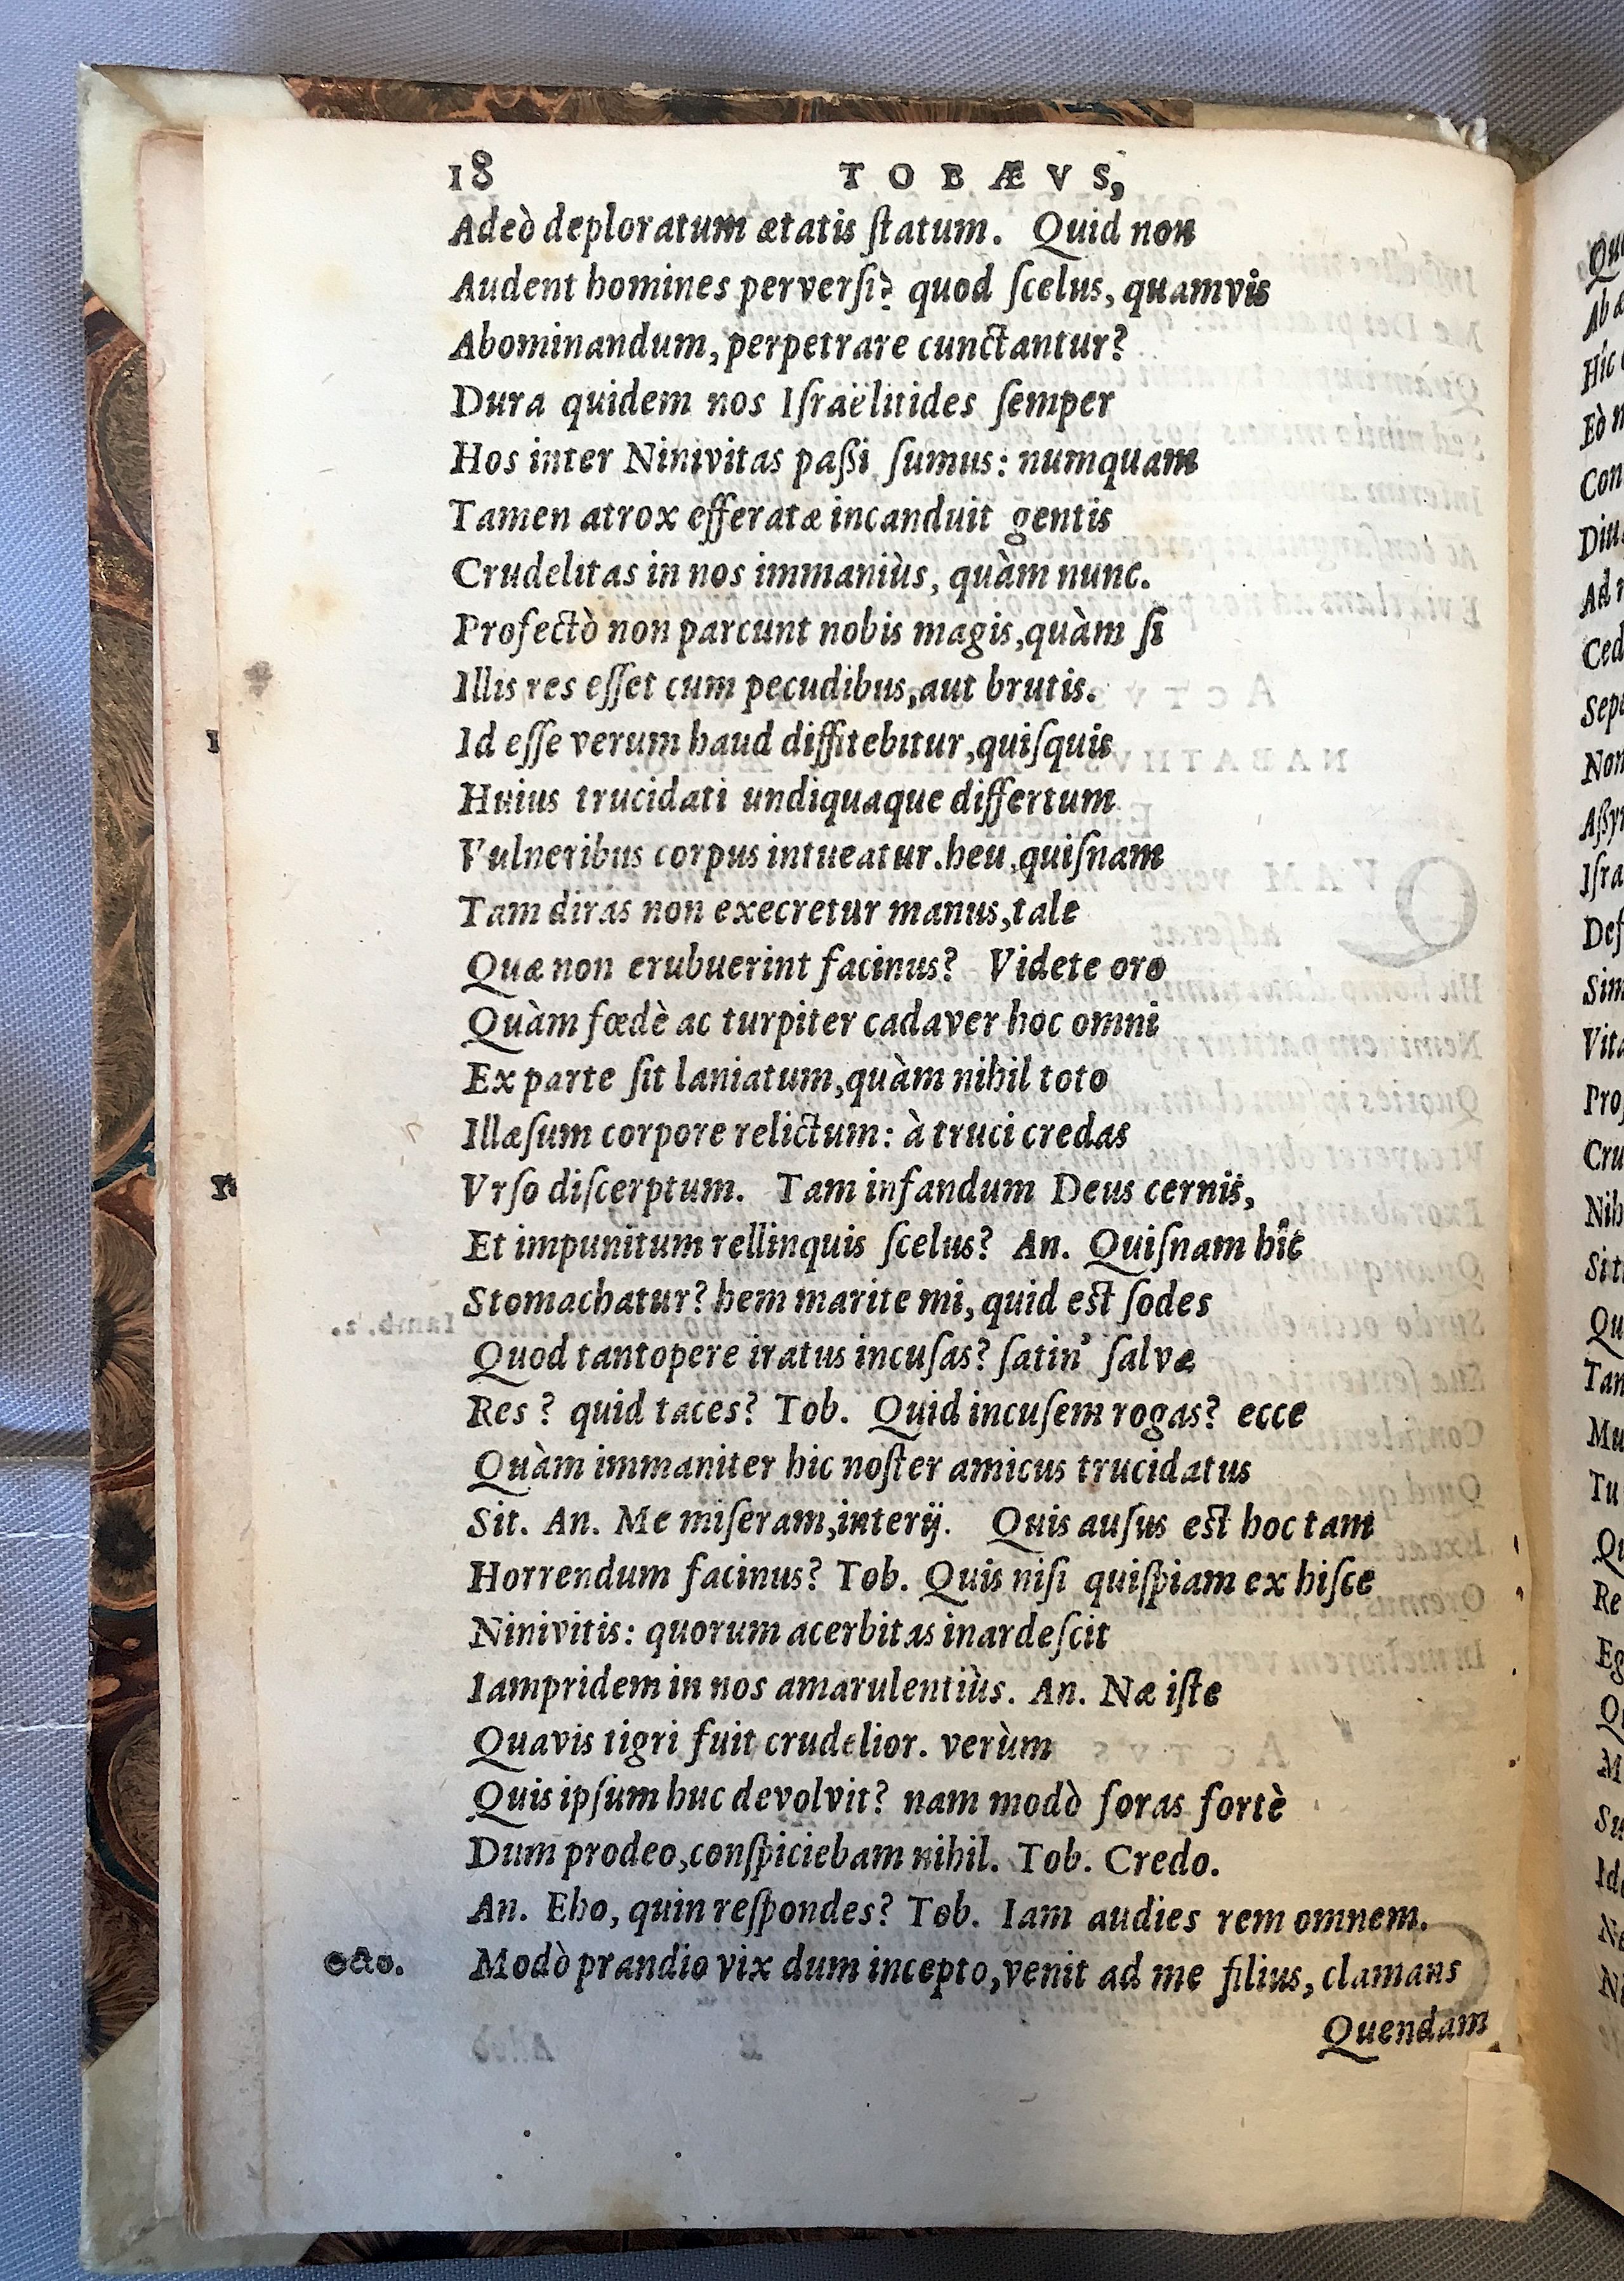 18 TOBÆVS,
Adeò deploratum ætatis ſtatum. Quid non
Audent homines perverſi? quod ſcelus, quamvis
Abominandum, perpetrare cunctantur?
Dura quidem nos Iſraëlitides ſemper
Hos inter Ninivitas paßi ſumus: numquam
Tamen atrox efferatæ incanduit gentis
Crudelitas in nos immaniùs, quàm nunc.
Profectò non parcunt nobis magis, quàm ſi
Illis res eſſet cum pecudibus, aut brutis.
Id eſſe verum haud diffitebitur, quiſquis
Huius trucidati undiquaque differtum
Vulneribus corpus intueatur. heu, quiſnam
Tam diras non execretur manus, tale
Quæ non erubuerint facinus? Videte oro
Quàm fœdè ac turpiter cadaver hoc omni
Ex parte ſit laniatum, quàm nihil toto
Illæſum corpore relictum: à truci credas
Vrſo diſcerptum. Tam infandum Deus cernis,
Et impunitum rellinquis ſcelus? An. Quiſnam hîc
Stomachatur? hem marite mi, quid est ſodes
Quod tantopere iratus incuſas? ſatin' ſalvæ
Res? quid taces? Tob. Quid incuſem rogas? ecce
Quàm immaniter hic noſter amicus trucidatus
Sit. An. Me miſeram, interij. Quis auſus est hoc tam
Horrendum facinus? Tob. Quis niſi quiſpiam ex hiſce
Ninivitis: quorum acerbitas inardeſcit
Iampridem in nos amarulentiùs. An. Næ iſte
Quavis tigri fuit crudelior. verùm
Quis ipſum huc devolvit? nam modò foras fortè
Dum prodeo, conſpiciebam nihil. Tob. Credo.
An. Eho, quin reſpondes? Tob. Iam audies rem omnem.
octo. Modò prandio vix dum incepto, venit ad me filius, clamans
Quendam